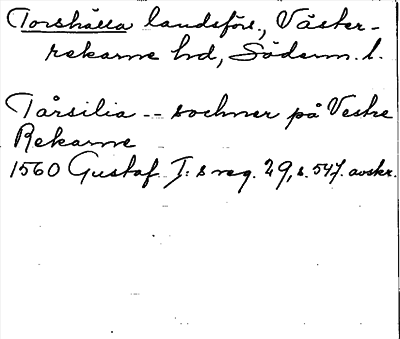 Torshälla landsförs., Väster-
rekarne hd, Söderm. l.
Tårsilia -- sochner på Vestre
Rekarne
1560 Gustaf I:s reg. 29, s. 547. avskr.